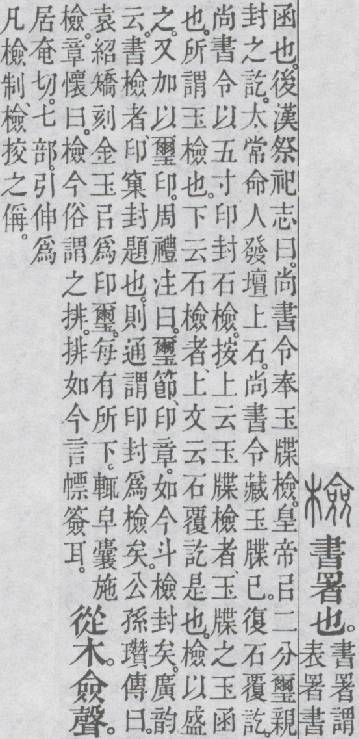 檢 書署也。
書署謂
表署書
函也。後漢祭祀志曰。尚書令奉玉牒檢。皇帝㠯二分璽親
封之訖。太常命人發壇上石。尚書令藏玉牒已。復石覆訖。
尚書令以五寸印封石檢。按上云玉牒檢者、玉牒之玉函
也。所謂玉檢也。下云石檢者、上文云石覆訖是也。檢以盛
之。又加以璽印。周禮注曰。璽節、印章。如今斗檢封矣。廣韵
云。書檢者、印窠封題也。則通謂印封爲檢矣。公孫瓚傳曰。
袁紹矯刻金玉㠯爲印璽。每有所下。輒皁囊施
檢。章懷曰。檢今俗謂之排。排如今言幖簽耳。
從木。僉聲。
居奄切。七部。引伸爲
凡檢制、檢挍之偁。